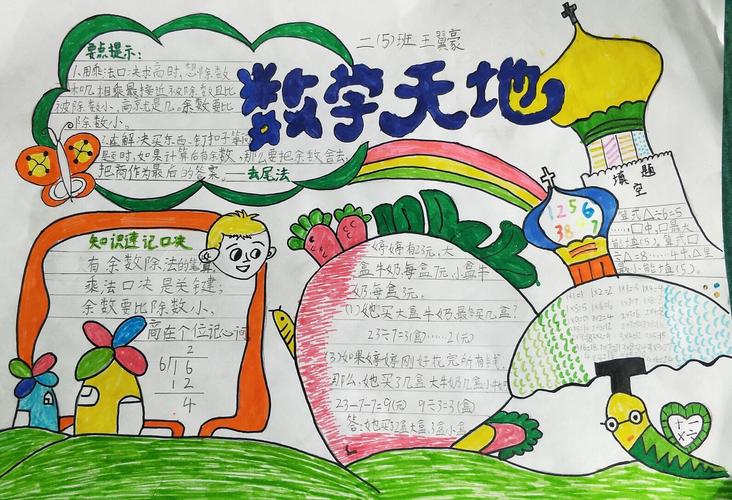 二(5)班 王翼豪
数学天地
要点提示:
1.用乘法口决求高时,想除数
和几相乘最接近被除数且比
被除数小,高就是几。余数要比
除数小。
2.在解决买东西、钉扣子等问
题时,如果计算后有余数,那么要把余数舍去,
把商作为最后的答案。——去尾法
知识速记口决
有余数除法的笔算,
乘法口决是关键;
余数要比除数小,
高在个位记心间
2
6 16
12
4
婷婷有23元,大
盒牛奶,每盒7元,小盒牛
奶,每盒3元。
(1)她买大盒牛奶最多买几盒?
23÷7=3(盒)……2(元)
(3)如果婷婷刚好花完所有钱,
那么,她买了几盒大牛奶几盒小牛奶
23-7-7=9(元) 9÷3=3(盒)
答:她买2盒大盒,3盒小盒
1256
3847
填题
空
算式△÷6=5
……□中,□最大
能填(5)。算式□
÷△=8……中,△里
最小能填(5)。
+-
×÷